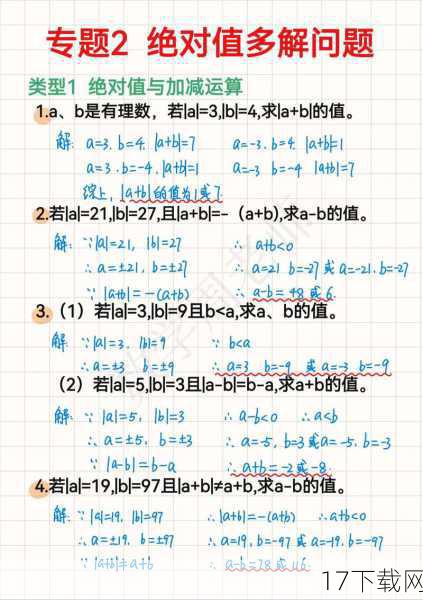 专题2 绝对值多解问题
类型1 绝对值与加减运算
1.a、b是有理数，若|a|=3,|b|=4,求|a+b|的值。
解: a=3. b=4. |a+b|=7 a=-3. b=4. |a+b|=1
a=3. b=-4. |a+b|=1 a=-3 b=-4 |a+b|=7
综上, |a+b|的值为1或7.
2.若|a|=21,|b|=27,且|a+b|=-（a+b),求a-b的值。
解: ∵|a|=21, |b|=27 ∴ a+b<0
∴ a=±21, b=±27 ∴ a=21 b=-27 或 a=-21. b=-27
∵ |a+b|=-(a+b) ∴ a-b=48或6.
3.（1）若|a|=3,|b|=9且b<a,求a、b的值。
解: ∵|a|=3. |b|=9 ∵ b<a
∴a=±3 b=±9 ∴ a=3 b=-9 或 a=-3 b=-9
（2）若|a|=5,|b|=3且|a-b|=b-a,求a+b的值。
解: ∵ |a|=5, |b|=3 ∴ a-b<0 ∴ a<b
∴ a=±5, b=±3 ∴ a=-5, b=3或a=-5, b=-3
∵ |a-b|=b-a ∴ a+b=-2或-8.
4.若|a|=19,|b|=97且|a+b|≠a+b,求a-b的值。
解: ∵|a|=19. |b|=97 ∴|a+b|=-(a+b) ∴a+b<0
∴a=±19. b=±97 ∴a=19, b=-97 或 a=-19. b=-97
∵ |a+b|≠a+b ∴ a-b=78或116.
17下载网